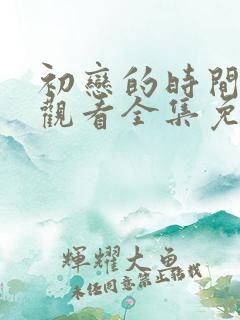 初戀的時間
觀看全集免
輝耀大魚
未经同意禁止转载